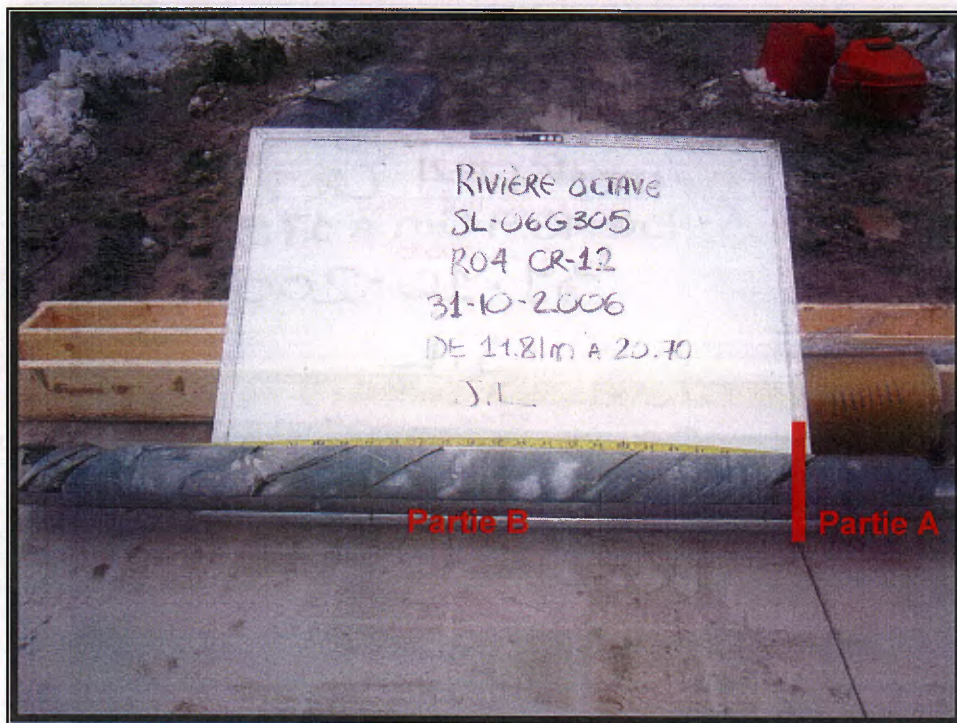 RIVIÈRE OCTAVE
SL-06G305
R04 CR-12
31-10-2006
DE 11.81m A 20.70
J.L
Partie B
Partie A